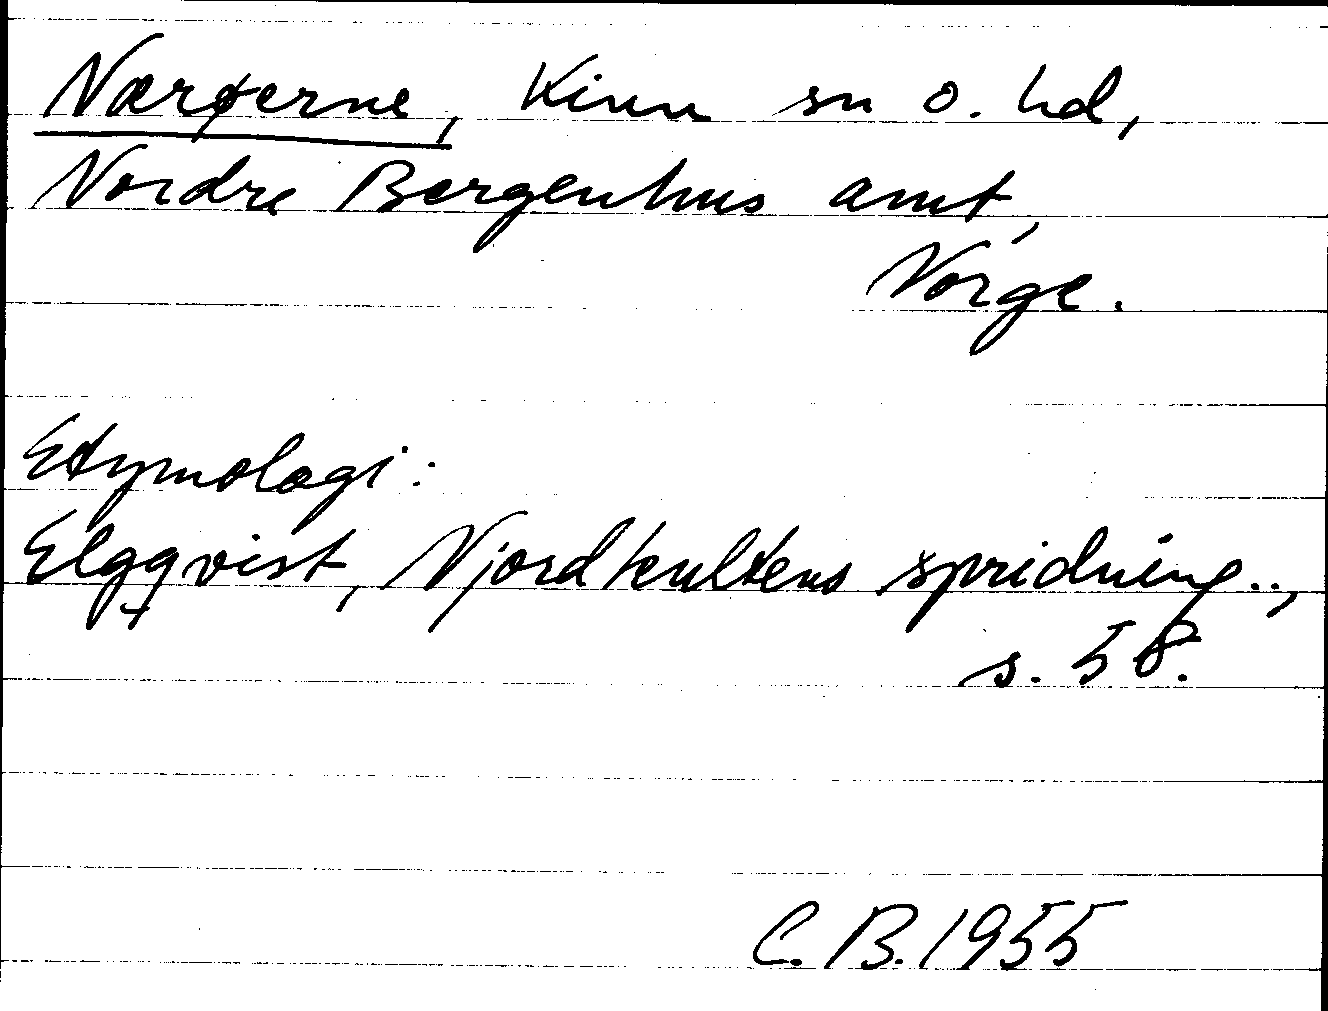 Nærøerne, Kinn sn o. hd,
Nordre Bergenhus amt,
Norge.
Etymologi:
Elgqvist, Njordkultens spridning..,
s. 58.
C. B. 1955